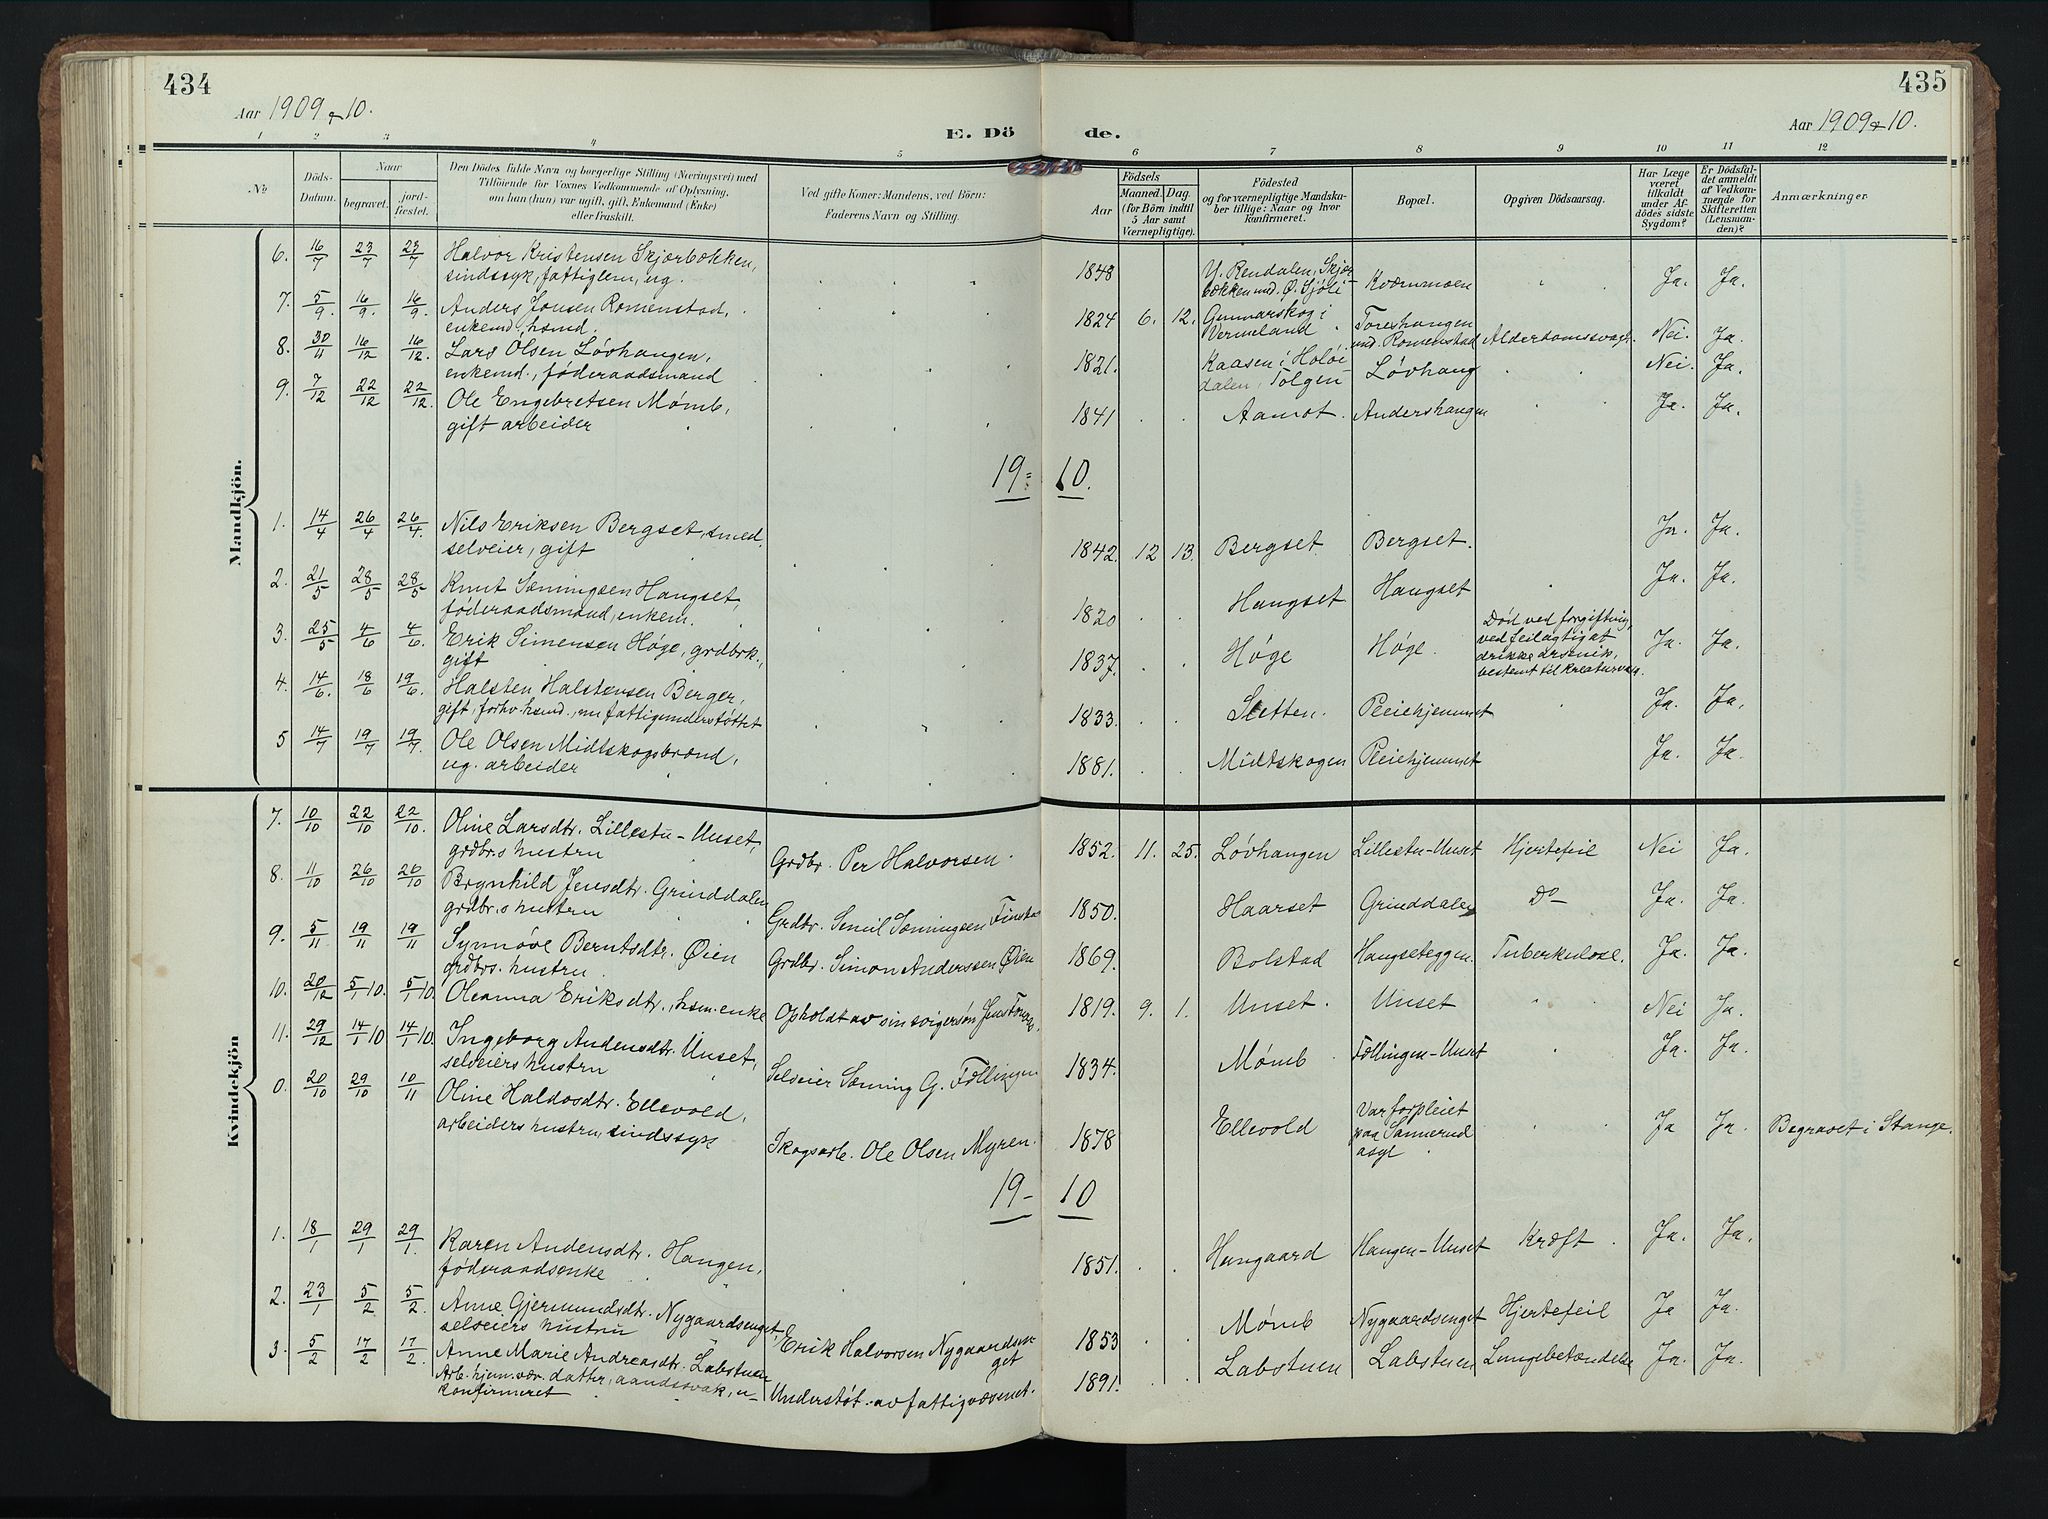 434
435
Aar 1909 & 10.
Aar 1909 & 10.
E. Dö de.
1 2 3 4 5 6 7 8 9 10 11 12
No
Döds-Datum.
Naar
begravet.
jord-fæstet.
Den Dödes fulde Navn og borgerlige Stilling (Næringsvei) med
Tilföiende for Voxnes Vedkommende af Oplysning,
om han (hun) var ugift, gift, Enkemand (Enke)
eller fraskilt.
Ved gifte Koner: Mandens, ved Börn:
Faderens Navn og Stilling.
Aar
Födsels
Maaned. Dag.
(for Börn indtil
5 Aar samt
Værnepligtige).
Födested
og for værnepligtige Mandska-
ber tillige: Naar og hvor
konfirmeret.
Bopæl.
Opgiven Dödsaarsag.
Har Læge
været
tilkaldt
under Af-
dödes sidste
Sygdom?
Er Dödsfal-
det anmeldt
af Vedkom-
mende for
Skifteretten
(Lensman-
den)?
Anmærkninger.
Mandkjön.
6. 16/7 23/7 23/7 Halvor Kristensen Skjærbækken, 1848 Y. Rendalen, Skjær- Kværnmoen Ja. Ja.
sindssyk, fattiglem, ug. bækken und. Ø. Sjöli
7. 5/9. 16/9. 16/9. Anders Jonsen Romenstad, 1824 6. 12. Gunnarskog i Toreshangen
enkemd., hsmd. Vermeland und. Romenstad Alderdomssvagh. Nei. Ja.
8. 30/11 16/12 16/12. Lars Olsen Løvhangen, 1821. Kaasen i Holöi- Løvhang Nei. Ja.
enkemd., føderaadsmand dalen, Tolgen
9. 7/12 22/12 22/12. Ole Engebretsen Mømb, 1841 Aamot. Andershangen Ja. Ja.
gift arbeider
19 = 10.
1. 14/4 26/4 26/4. Nils Eriksen Bergset, smed, 1842. 12 13. Bergset. Bergset. Ja. Ja.
selveier, gift
2. 21/5 28/5 28/5 Knut Sæmingsen Hangset, 1820 Hangset Hangset Ja. Ja.
føderaadsmand, enkem.
3. 25/5 4/6 4/6. Erik Simensen Høge, grdbrk., 1837. Høge Høge. Død ved forgiftning, Ja. Ja.
gift ved feilagtig at
drikke arsenik,
bestemt til kreaturvask.
4. 14/6. 18/6 19/6. Halsten Halstensen Berger, 1833. Sletten. Pleiehjemmet Ja. Ja.
gift, forhv. hsmd., nu fattigunderstøttet
5 14/7 19/7 19/7. Ole Olsen Midtskogsbrænd, 1881. Midtskogen Pleiehjemmet Ja. Ja.
ug. arbeider
Kvindekjön
7. 10/10 22/10 22/10. Oline Larsdtr. Lillestu-Unset, Grdbr. Per Halvorsen. 1852. 11. 25. Løvhangen Lillestu-Unset Hjertefeil Nei Ja.
grdbr.s hustru
8. 11/10 26/10 26/10. Brynhild Jensdtr. Grinddalen Grdbr. Semil Sæmingsen Finstad 1850. Haarset Grinddalen Do Ja. Ja.
grdbr.s hustru
9. 5/11 19/11 19/11 Synnøve Berntsdtr. Øien Grdbr. Simon Anderssen Øien 1869. Bolstad Hangseteggen. Tuberkulose. Ja. Ja.
grdbrs. hustru
10. 20/12 5/1 10. 5/1 10. Oleanna Eriksdtr., hsm.enke Opholdt av sin svigersøn Jens 1819. 9. 1. Unset. Unset Nei Ja.
11. 29/12 14/1 10 14/1 10. Ingeborg Andersdtr. Unset, Selveier Sæming G. Føllingen 1834. Mømb Føllingen-Unset Ja. Ja.
selveiers hustru
0. 20/10 29/10 10/11 Oline Haldosdtr. Ellevold, Skogsarb. Ole Olsen Myren. 1878 Ellevold Var forpleiet Ja Ja. Begravet i Stange.
arbeiders hustru, sindssyk paa Sannerud
asyl
19 - 10
1. 18/1 29/1 29/1. Karen Andersdtr. Hangen, 1851. Haugaard Hangen-Unset Kræft. Ja. Ja.
føderaadsenke
2. 23/1 5/2 5/2. Anne Gjermundsdtr. Nygaardsenget, Erik Halvorsen Nygaardsen- 1853 Mømb Nygaardsenget Hjertefeil Ja Ja.
selveiers hustru get
3. 5/2 17/2 17/2. Anne Marie Andreasdtr. Labstuen Understøt. av fattigvæsenet. 1891. Labstuen Labstuen Lungebetændelse Ja. Ja.
Arb. hjem.vær. datter, aandssvak, u-
konfirmeret